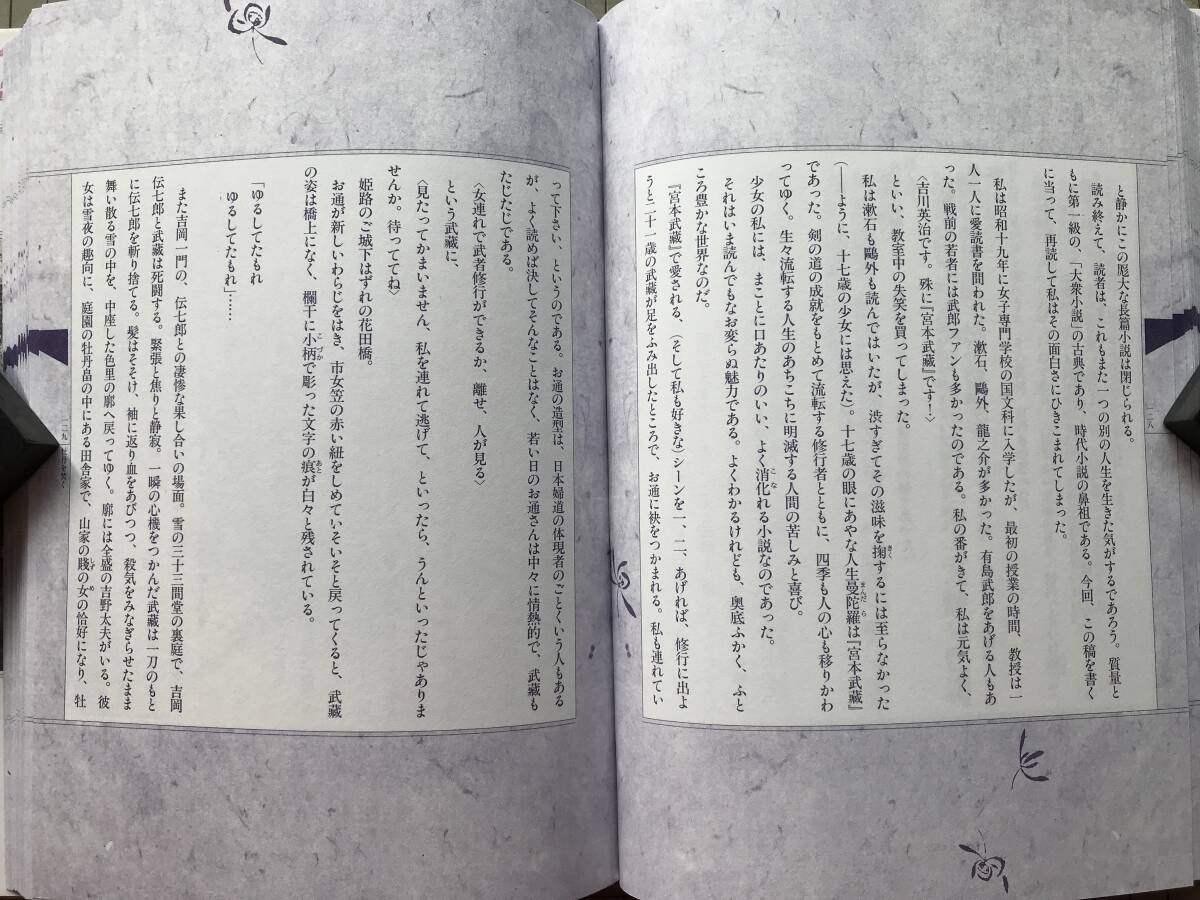 と静かにこの厖大な長篇小説は閉じられる。
読み終えて、読者は、これもまた一つの別の人生を生きた気がするであろう。質量と
もに第一級の、「大衆小説」の古典であり、時代小説の鼻祖である。今回、この稿を書く
に当って、再読して私はその面白さにひきこまれてしまった。
私は昭和十九年に女子専門学校の国文科に入学したが、最初の授業の時間、教授は一
人一人に愛読書を問われた。漱石、鷗外、龍之介が多かった。有島武郎をあげる人もあ
った。戦前の若者には武郎ファンも多かったのである。私の番がきて、私は元気よく、
〈吉川英治です。殊に『宮本武藏』です!〉
といい、教室中の失笑を買ってしまった。
私は漱石も鷗外も読んではいたが、渋すぎてその滋味を掬するには至らなかった
(――ように、十七歳の少女には思えた)。十七歳の眼にあやな人生曼陀羅は『宮本武藏』
であった。剣の道の成就をもとめて流転する修行者とともに、四季も人の心も移りかわ
ってゆく。生々流転する人生のあちこちに明滅する人間の苦しみと喜び。
少女の私には、まことに口あたりのいい、よく消化れる小説なのであった。
それはいま読んでもなお変らぬ魅力である。よくわかるけれども、奥底ふかく、ふと
ころ豊かな世界なのだ。
『宮本武藏』で愛される、(そして私も好きな)シーンを一、二、あげれば、修行に出よ
うと二十一歳の武藏が足をふみ出したところで、お通に袂をつかまれる。私も連れてい
一二八
って下さい、というのである。お通の造型は、日本婦道の体現者のごとくいう人もある
が、よく読めば決してそんなことはなく、若い日のお通さんは中々に情熱的で、武藏も
たじたじである。
〈女連れで武者修行ができるか、離せ、人が見る〉
という武藏に、
〈見たってかまいません、私を連れて逃げて、といったら、うんといったじゃありま
せんか。待っててね〉
姫路のご城下はずれの花田橋。
お通が新しいわらじをはき、市女笠の赤い紐をしめていそいそと戻ってくると、武藏
の姿は橋上になく、欄干に小柄で彫った文字の痕が白々と残されている。
「ゆるしてたもれ
ゆるしてたもれ」……
また吉岡一門の、伝七郎との凄惨な果し合いの場面。雪の三十三間堂の裏庭で、吉岡
伝七郎と武藏は死闘する。緊張と焦りと静寂。一瞬の心機をつかんだ武藏は一刀のもと
に伝七郎を斬り捨てる。髪はそそけ、袖に返り血をあびつつ、殺気をみなぎらせたまま
舞い散る雪の中を、中座した色里の廓へ戻ってゆく。廓には全盛の吉野太夫がいる。彼
女は雪夜の趣向に、庭園の牡丹畠の中にある田舎家で、山家の賤の女の恰好になり、牡
一二九